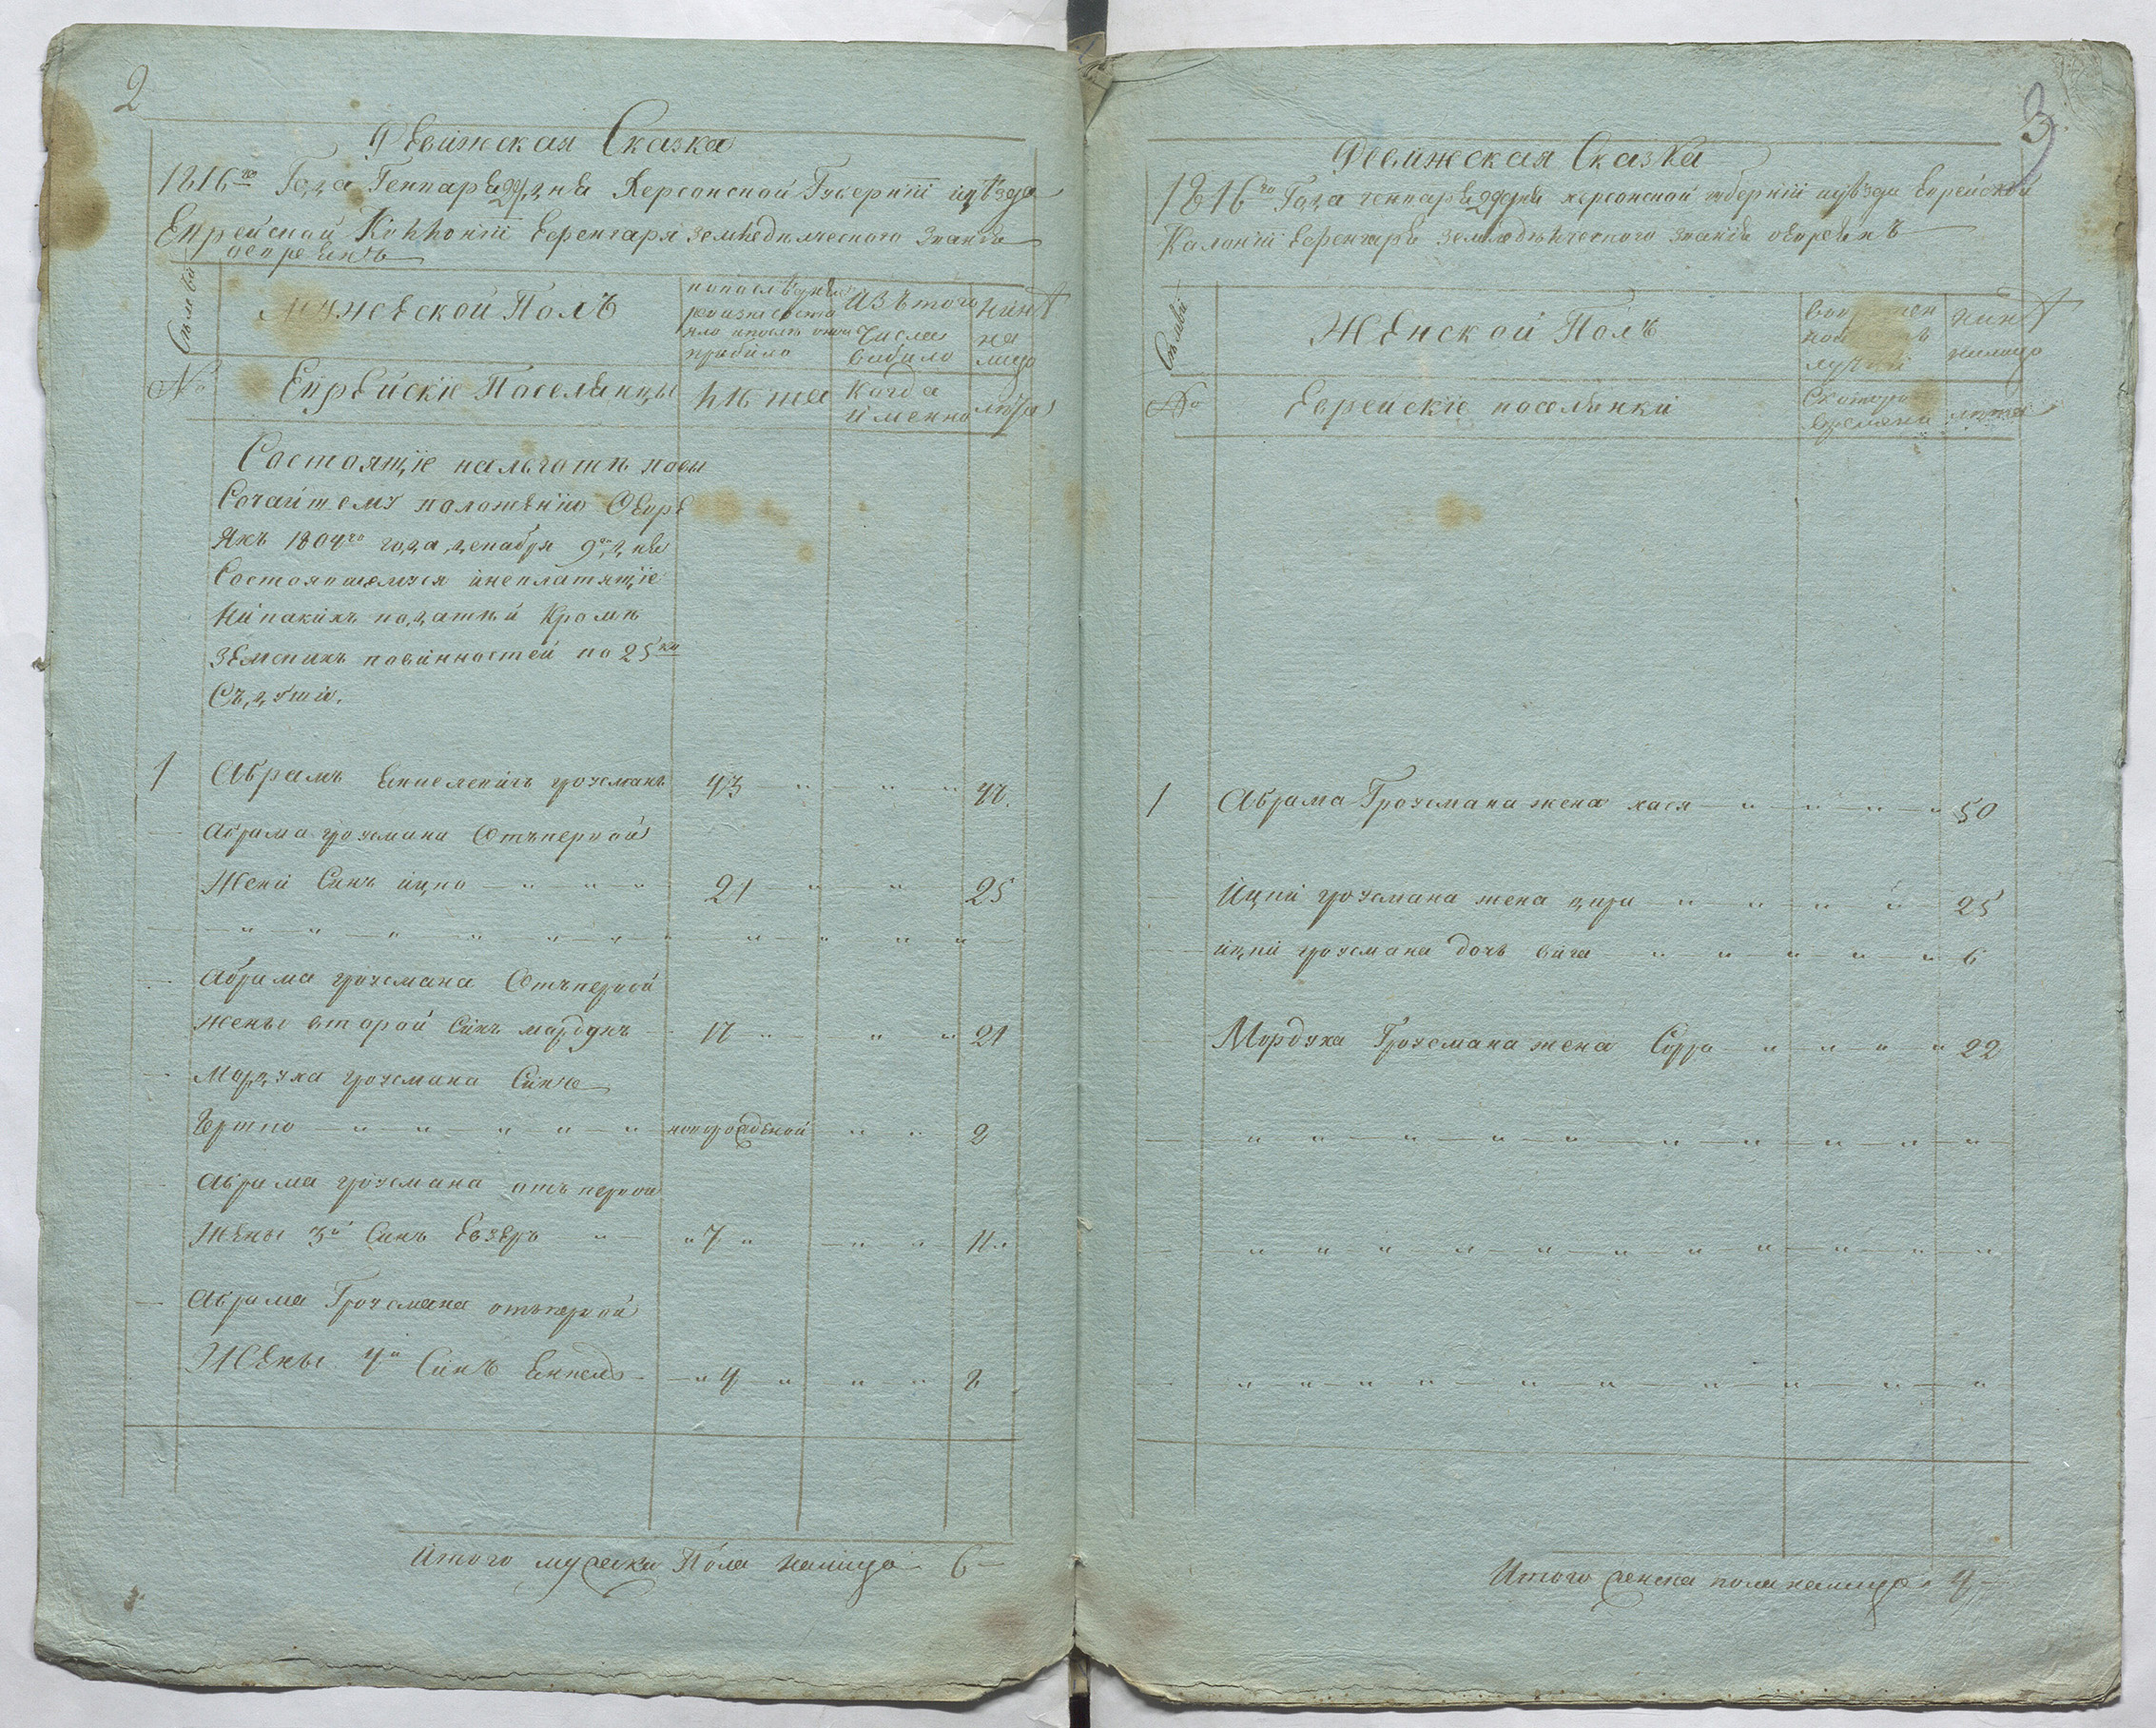 2
Ревижская Сказка
1816го Года Генваря 29 дня Херсонской Губернiи иуѣзда
Еврейской Коллонiи Ефенгаря Земледѣлческого Званiя
оевреяхъ
Семьи
Мужеской Полъ
попослѣдней
ревизiи состо
яло ипослѣ оной
прибыло
Изътого
числа
выбыло
нынѣ
на
лицо
№
Еврейскiе Поселянцы
лѣта
Когда
именно
лѣта
Состоящiе нальготѣ повы
Сочайшему положенiю Oевре
яхъ 1804го года декабря 9го дня
Состоявшемуся инеплатящiе
Ниикакихъ податѣй Кромѣ
Земскихъ повинностей по 25 ко
Съдуши.
1 Абрамъ Енкелевичь гроусманъ 43 47.
Абрама гроусмана Отъпервой
Жени Синъ ицко 21 25
Абрама гроусмана Отъпервой
Жены второй Синъ мордухъ 17 21
Мордуха гроусмана Синъ
Гершко новорожденой 2
Абрама гроусмана отъ первой
Жены 3й Синъ Евзеръ 7 11
Абрама Гроусмана отъпервой
Жены 4й Синъ Енкель 4 8
Итого мужеска Пола налицо 6
3
Ревижская Сказка
1816го Года генваря 29 дня херсонской губернiи иуѣзда Еврейской
Калонiи Ефенгаря Земледѣлческого званiя оевреяхъ
Семьи
Женской Полъ
нинѣ
налицо
№
Еврейскiе поселянки
Скоторого
времени
лѣта
1 Абрама Гроусмана жена хася 50
Ицки гроусмана жена цира 25
ицки гроусмана дочь вига 6
Мордуха Гроусмана жена Сорра 22
Итого женска пола налицо 4